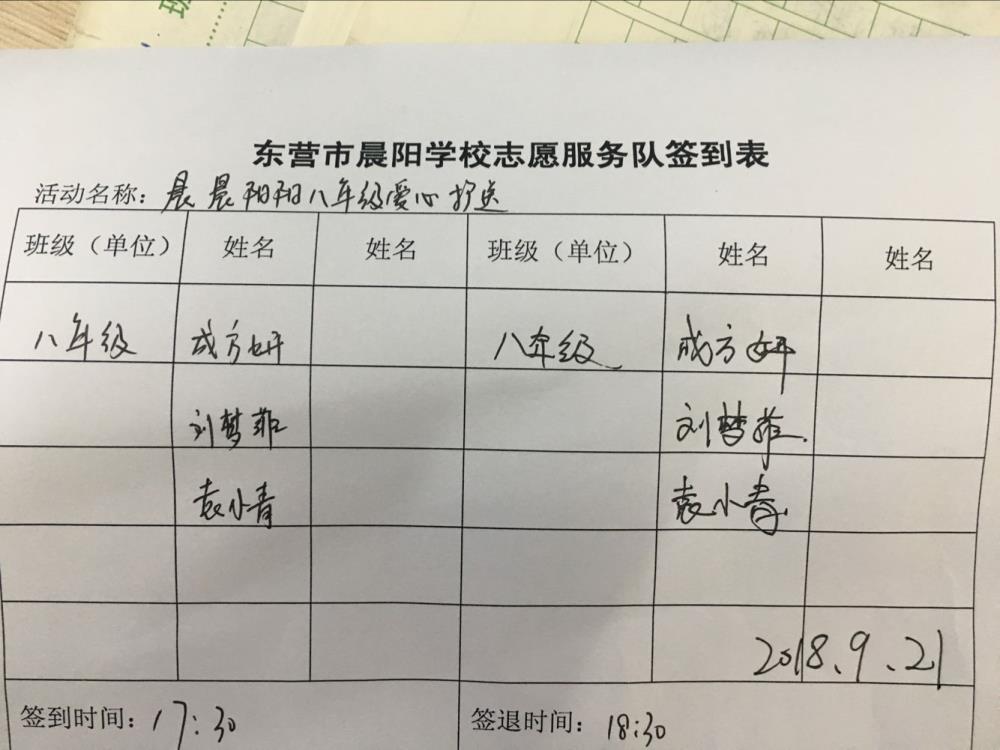 班
东营市晨阳学校志愿服务队签到表
活动名称：晨晨阳阳八年级爱心护送
班级（单位） 姓名 姓名 班级（单位） 姓名 姓名
八年级 成方妍 八年级 成方妍
刘梦菲 刘梦菲
袁小青 袁小青
2018.9.21
签到时间：17:30 签退时间：18:30